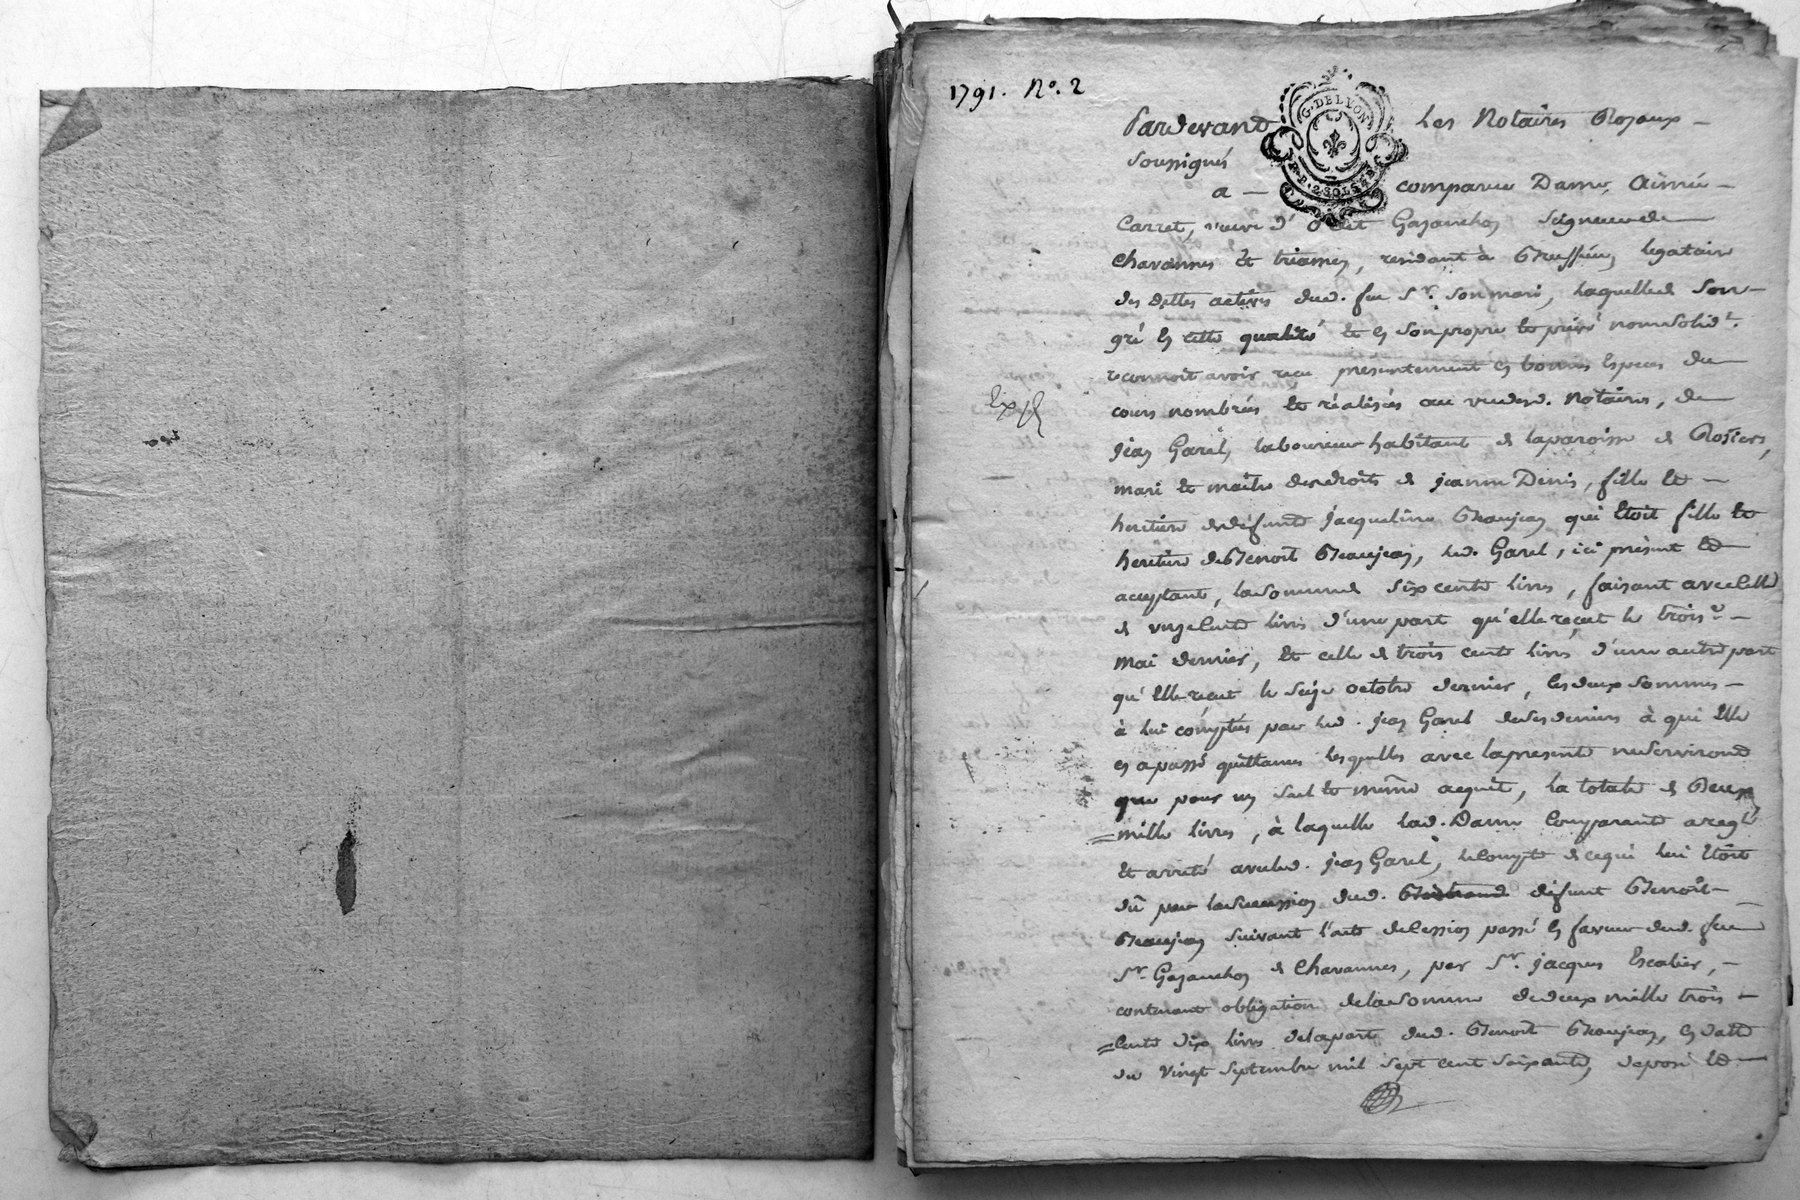 1791. No. 2
G. DE LYON
2 SOLS
Pardevant Les Notaires Royaux
soussignés
a — comparue Dame Aimée
Carret, veuve d' Gayauchon seigneur de
Chavannes et , residant à legataire
des dettes actives dud. feu Sr. son mari, laquelle de son
gré en cette qualité et en son propre et privé nom solidt.
reconnoit avoir recu presentement en bonnes Especes du
cours nombrées et réalisées au vu desd. Notaires, de
Expé
jean Garel, laboureur habitant de la paroisse de Rosiers,
mari et maitre des droits de jeanne Denis, fille et
heritiere de défunte jacqueline Beaujean qui Etoit fille et
heritiere de Benoit Beaujean, led. Garel, ici présent et
acceptant, la somme de six cents livres, faisant avec celle
de onze cents livres d'une part qu'elle reçut le trois
mai dernier, et celle de trois cents livres d'une autre part
qu'Elle reçut le seize octobre dernier, les deux sommes
à lui comptées par led. jean Garel de ses deniers à qui Elle
en a passé quittances lesquelles avec la presente ne serviront
que pour un seul et même acquit, la totale de Deux
mille livres, à laquelle lad. Dame Comparante a reglé
et arrêté avec led. jean Garel, le Compte de ce qui lui Etoit
dû par la succession dud. défunt Benoît
Beaujean suivant l'acte de Cession passé en faveur dud. feu
Sr. Gayauchon de Chavannes, par Sr. jacques Escalier,
contenant obligation de la somme de deux mille trois
Cents dix livres de la part dud. Benoit Beaujean, en datte
du Vingt septembre mil sept cent soixante, déposé et